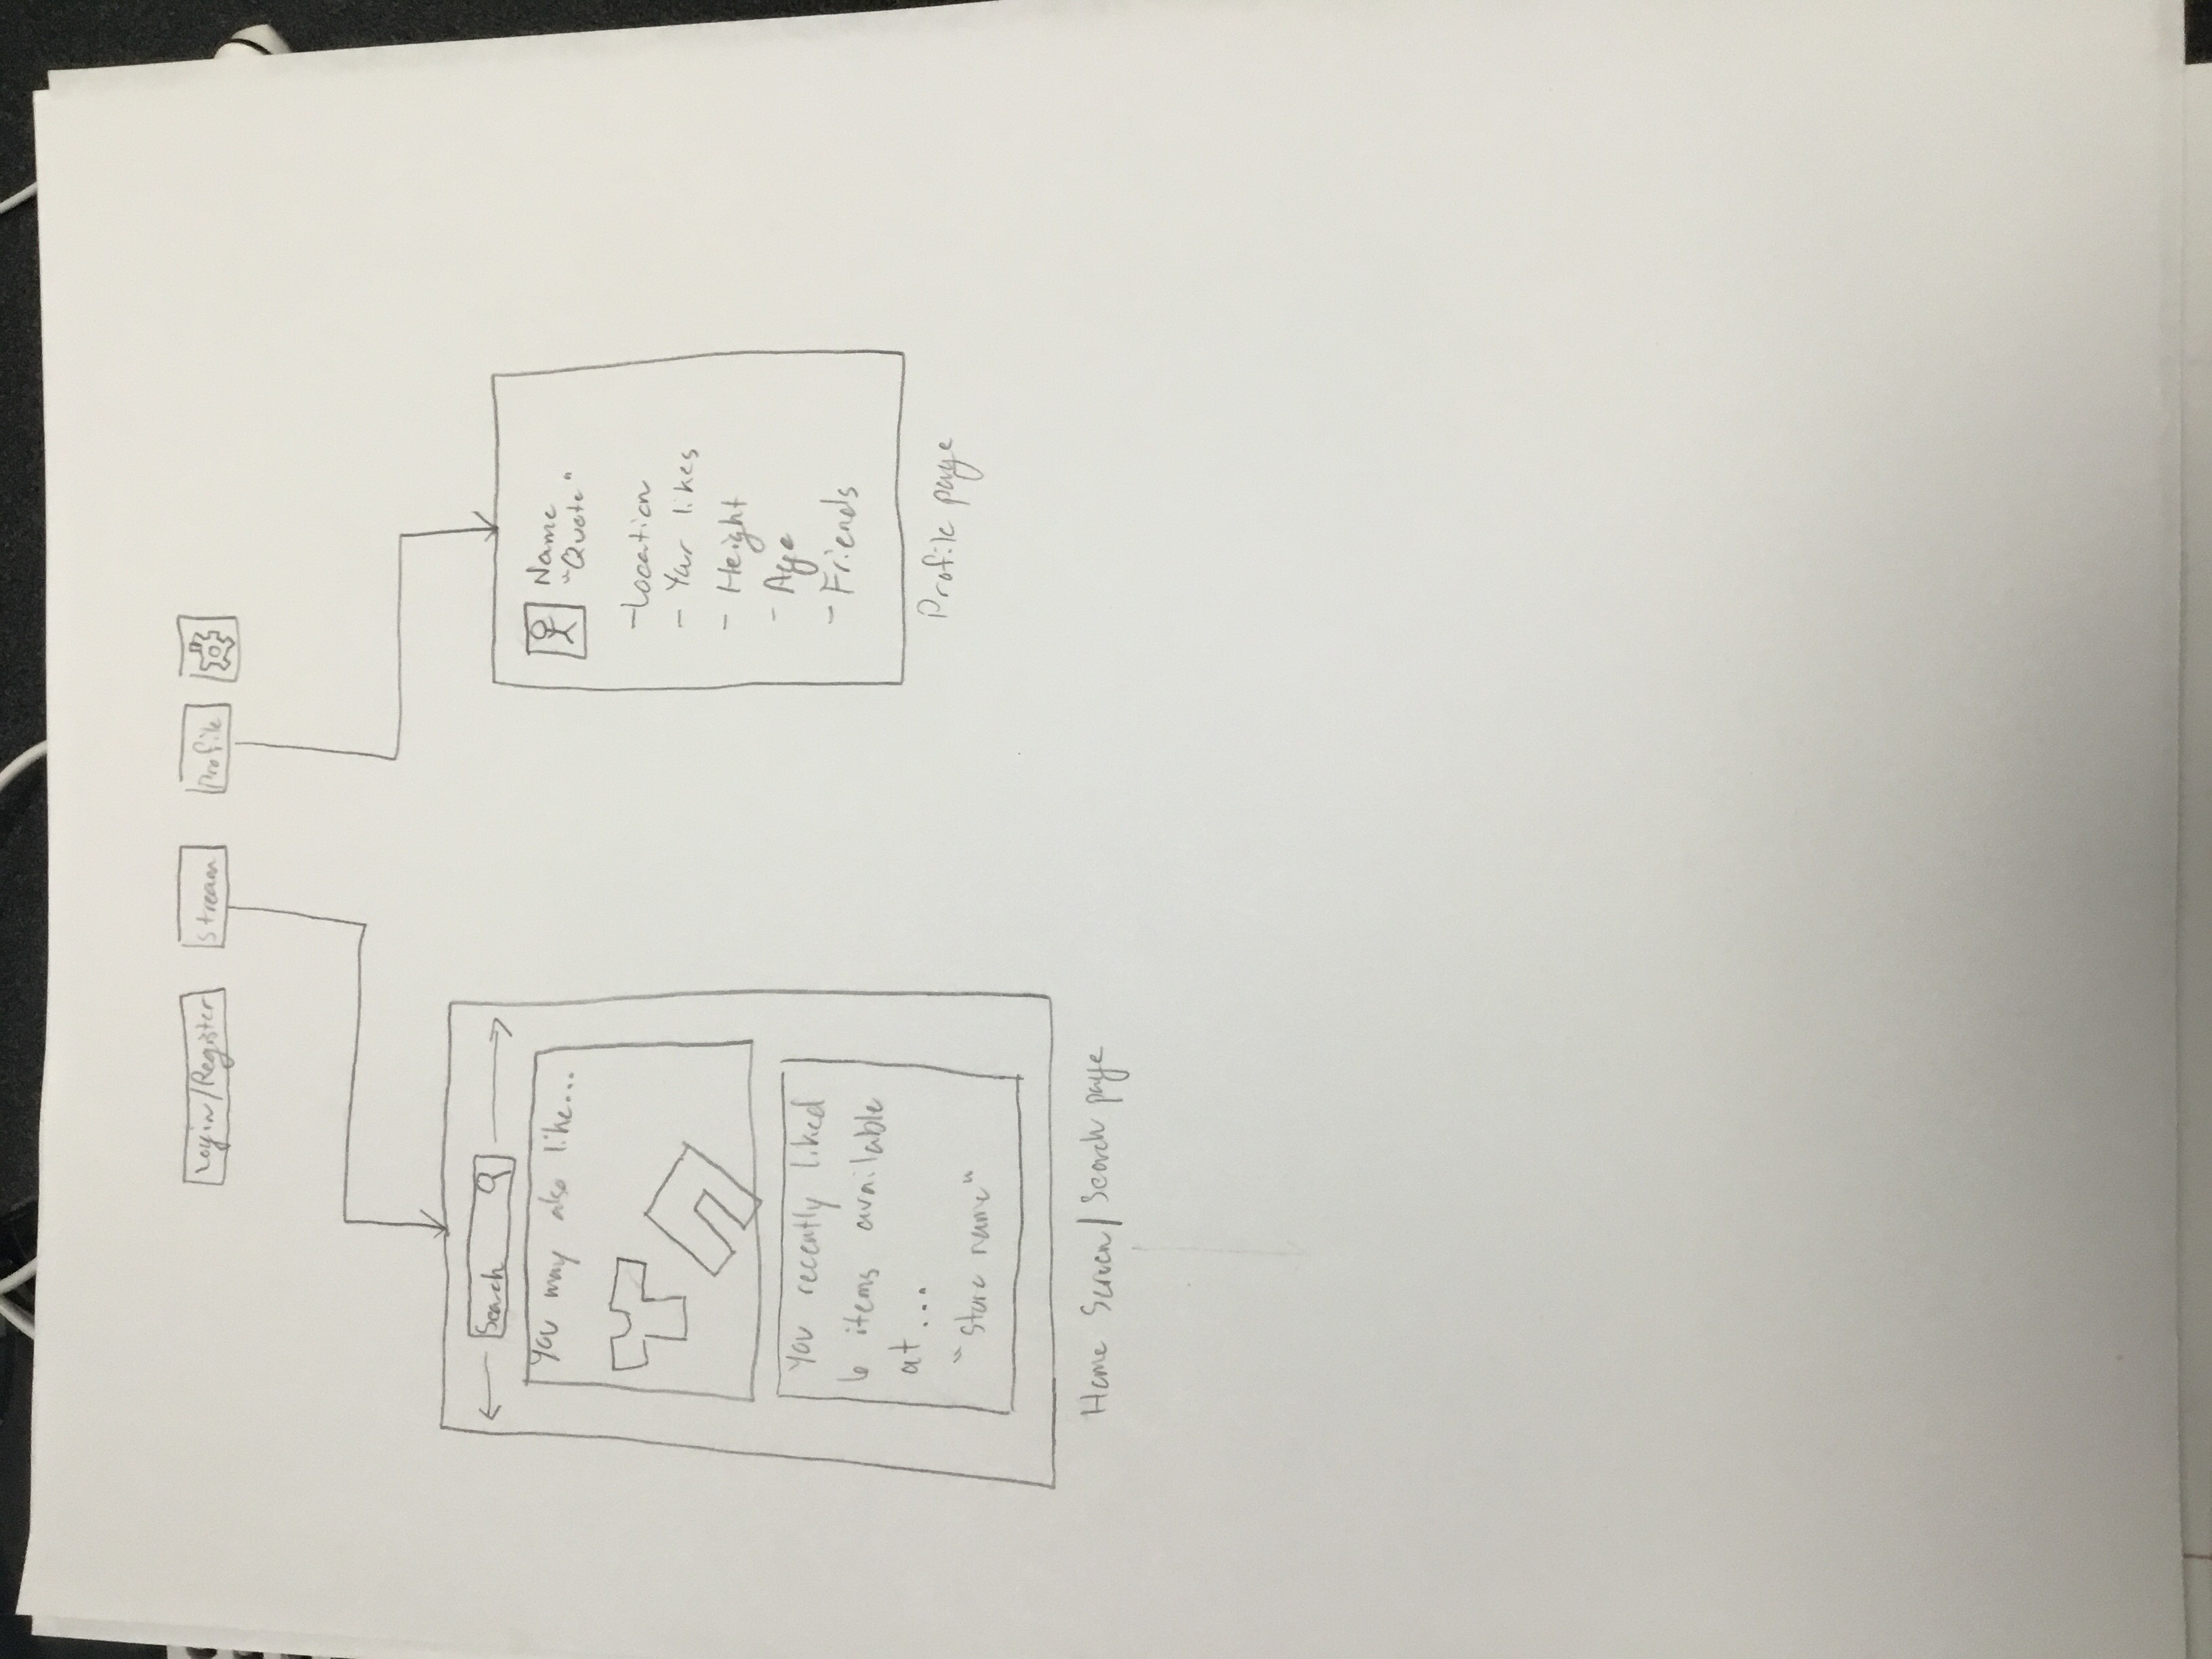 Login/Register
Stream
Profile
Search
You may also like...
You recently liked
6 items available
at...
"Store name"
Home Screen/Search page
Name
"Quote"
-Location
- Your likes
- Height
- Age
- Friends
Profile page